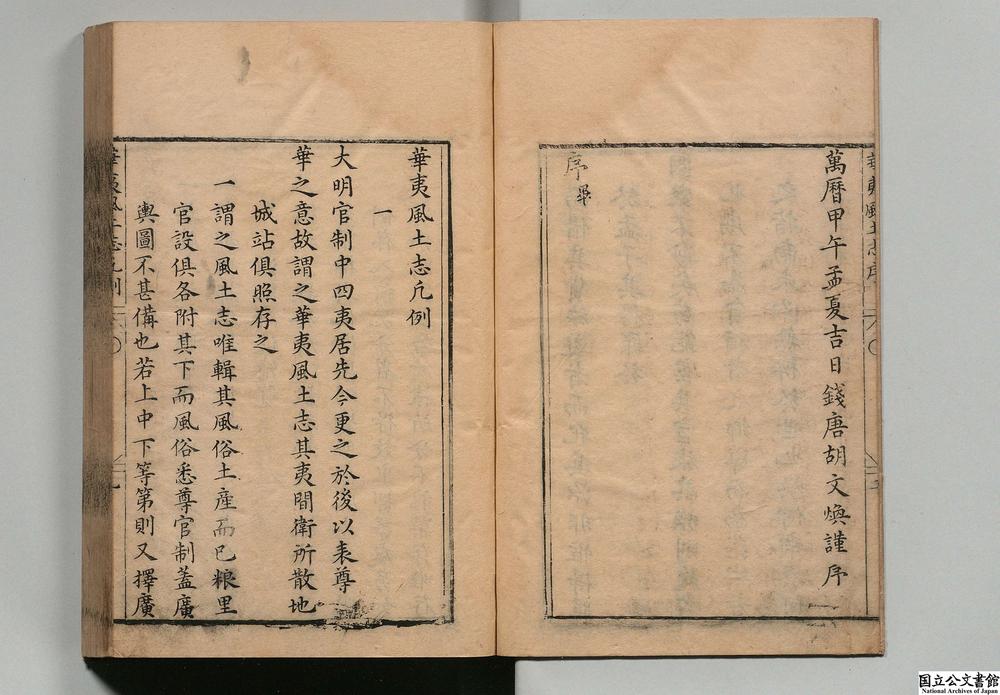 萬曆甲午孟夏吉日錢唐胡文煥謹序
序畢
華夷風土志凡例
一
大明官制中四夷居先今更之於後以表尊
華之意故謂之華夷風土志其夷間衛所散地
城站俱照存之
一謂之風土志唯輯其風俗土產而已粮里
官設俱各附其下而風俗悉尊官制葢廣
輿圖不甚備也若上中下等第則又擇廣
国立公文書館
National Archives of Japan